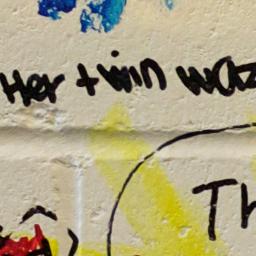 Her twin waz
Th